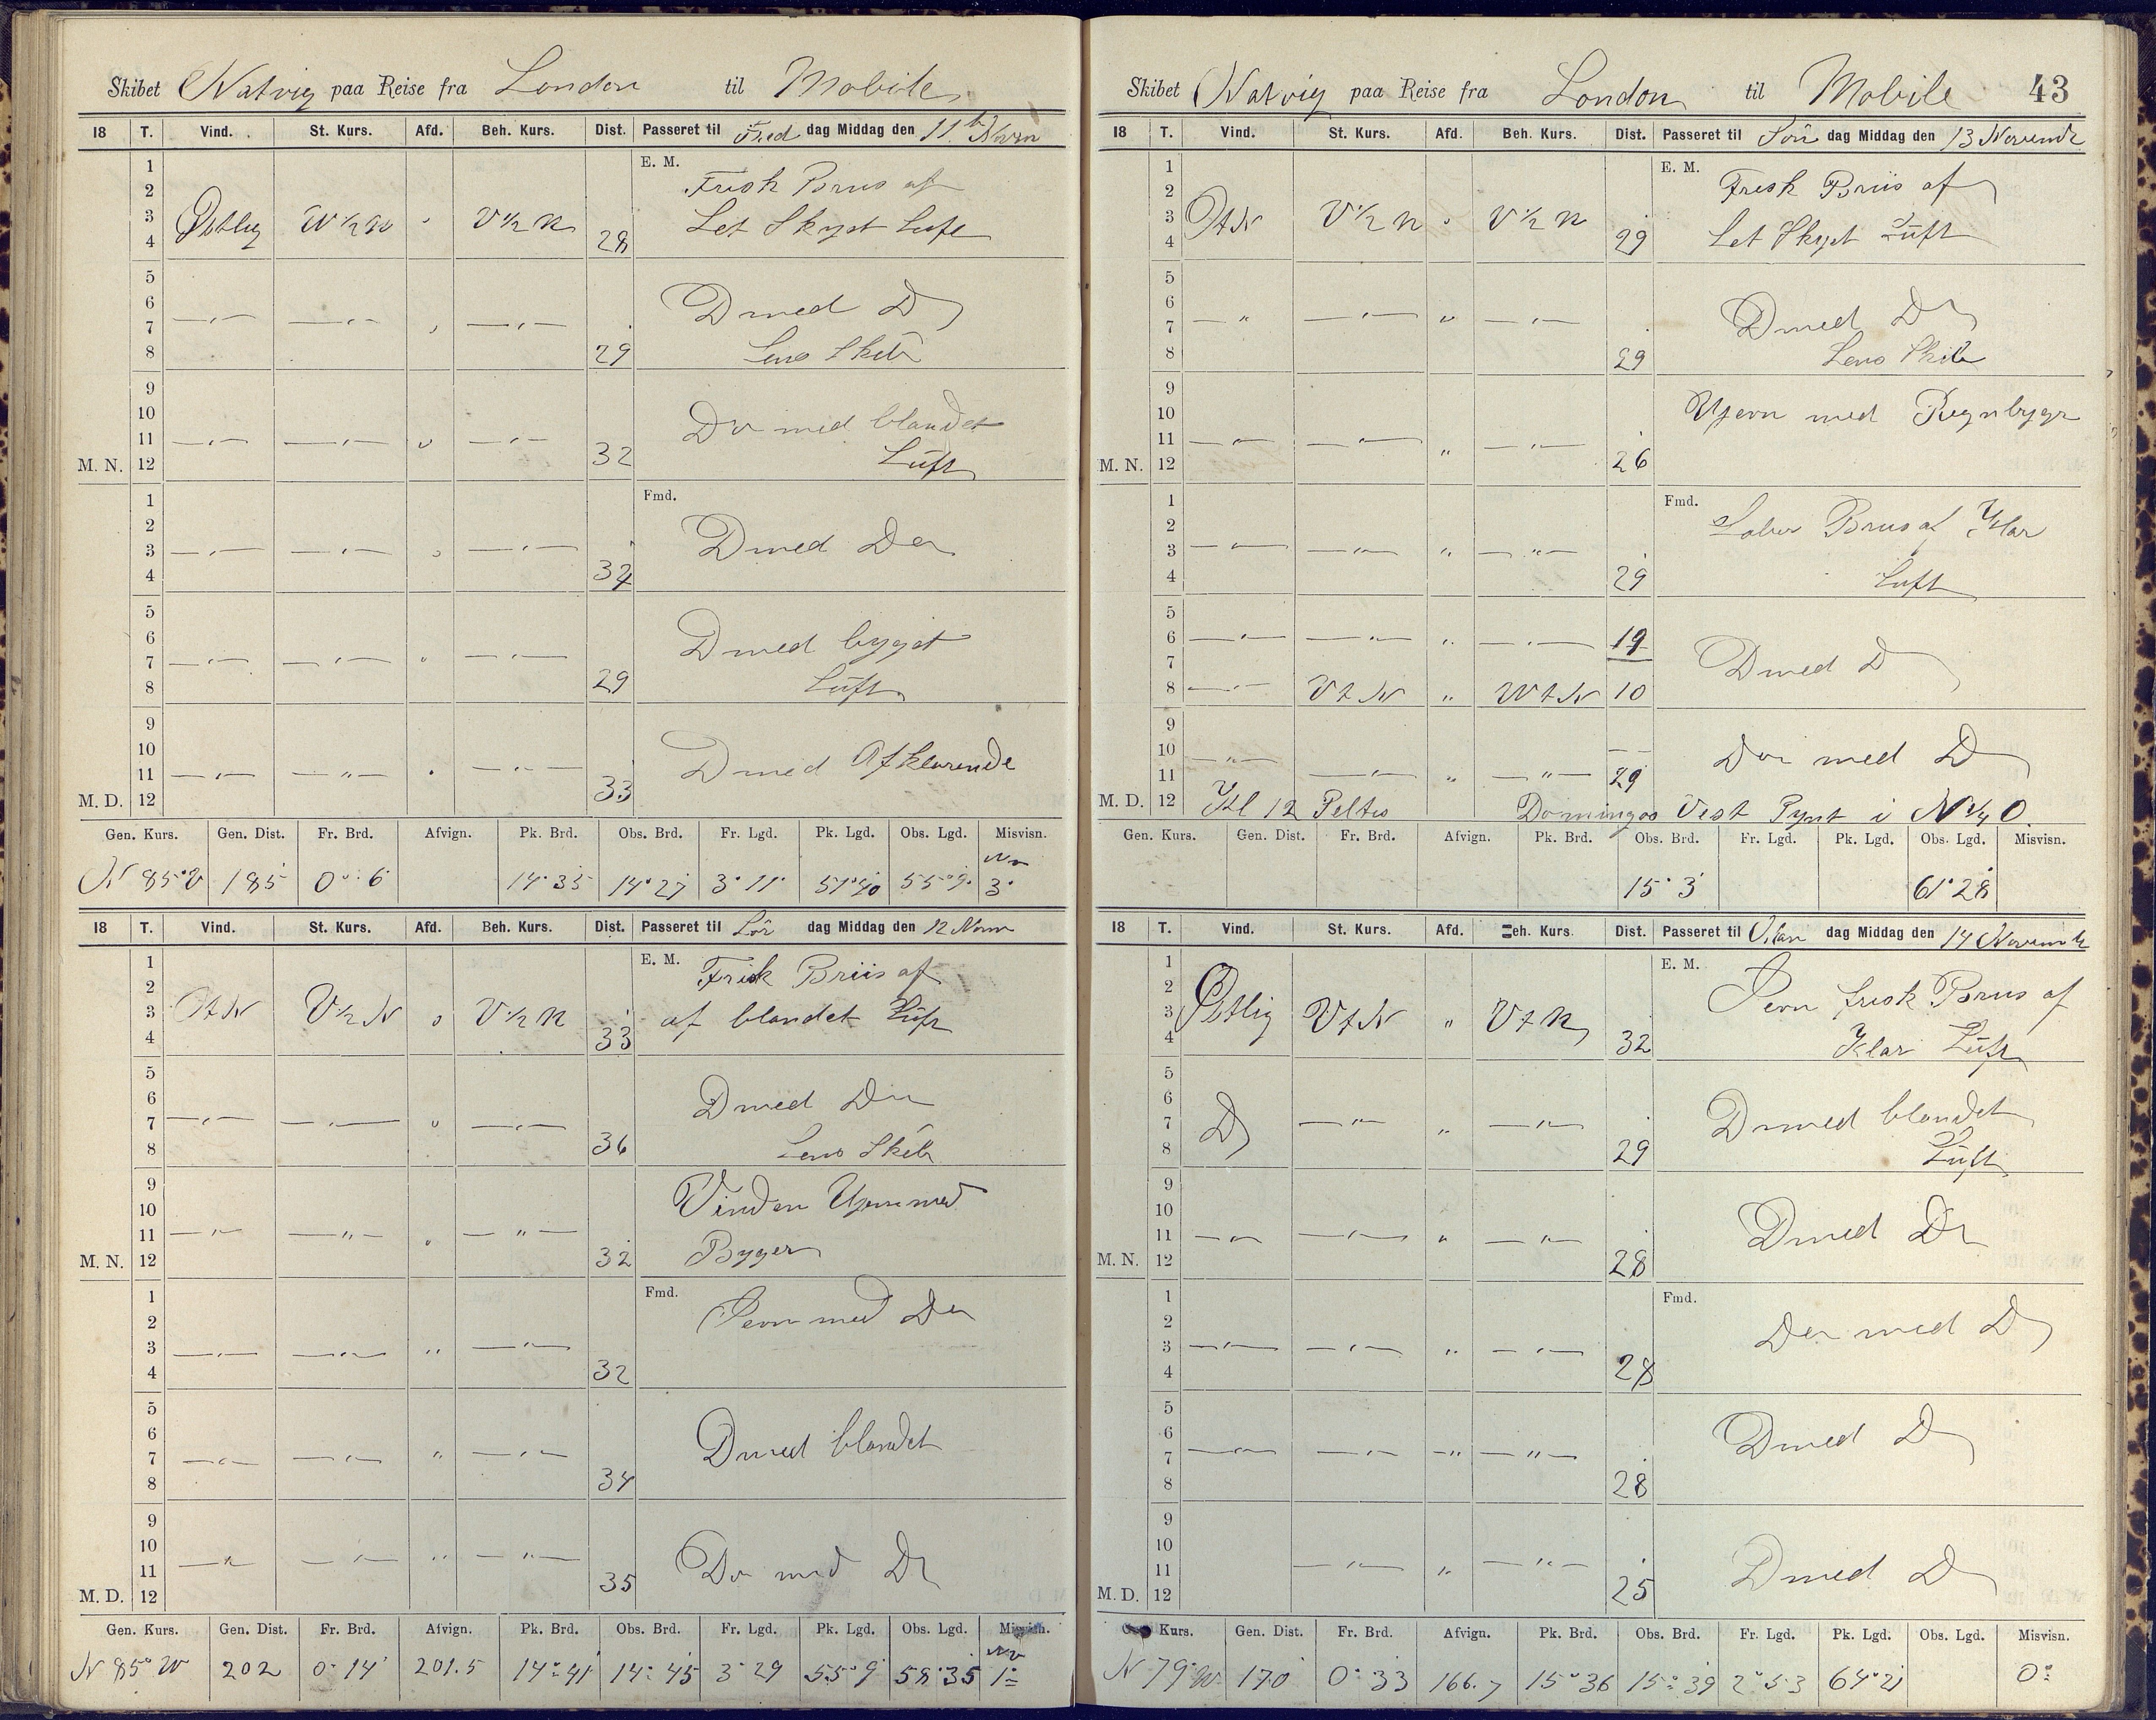 Skibet Natvig paa Reise fra London til Mobile
18 T. Vind. St. Kurs. Afd. Beh. Kurs. Dist. Passeret til Fred dag Middag den 11te Novm
1 E. M.
2 Frisk Briis af
3 Østlig W ½ N " V ½ N Let Skyet Luft
4 28
5
6 D med D
7 — " — — " — " — " —
8 29 Lens Skib
9
10 Do med blandet
11 — " — — " — " — " — Luft
M. N. 12 32
1 Fmd.
2 D med Do
3 — " — — " — " — " —
4 32
5
6 D med bygget
7 — " — — " — " — " —
8 29 Luft
9
10 D med Afklarende
11 — " — — " — " — " —
M. D. 12 33
Gen. Kurs. Gen. Dist. Fr. Brd. Afvign. Pk. Brd. Obs. Brd. Fr. Lgd. Pk. Lgd. Obs. Lgd. Misvisn.
N 85° V 185 0° 6' 14° 35 14° 27 3° 11' 51° 40 55° 9' 3°
18 T. Vind. St. Kurs. Afd. Beh. Kurs. Dist. Passeret til Lör dag Middag den 12 Novm
1 E. M. Frisk Briis af
2
3 OtN V ½ N " V ½ N af blandet Luft
4 33
5
6 D med Do
7 — " — — " — " — " —
8 36 Lens Skib
9 Vinden Ujevn med
10
11 — " — — " — " — " — Byger
M. N. 12 32
1 Fmd. Jevn med Do
2
3 — " — — " — " — " —
4 32
5
6 D med blandet
7 — " — — " — " — " —
8 34
9
10
11 — " — — " — " — " — Do med Do
M. D. 12 35
Gen. Kurs. Gen. Dist. Fr. Brd. Afvign. Pk. Brd. Obs. Brd. Fr. Lgd. Pk. Lgd. Obs. Lgd. Misvisn.
N 85° W 202 0° 14' 201.5 14° 41' 14° 45 3° 29 55° 9' 58° 35 1°
Skibet Natvig paa Reise fra London til Mobile 43
18 T. Vind. St. Kurs. Afd. Beh. Kurs. Dist. Passeret til Sön dag Middag den 13 Novembr
1 E. M. Frisk Briis af
2
3 OtN V ½ N " V ½ N Let Skyet Luft
4 29
5
6 D med Do
7 — " — — " — " — " —
8 29 Lens Skib
9
10 Ujevn med Regnbyger
11 — " — — " — " — " —
M. N. 12 26
1 Fmd.
2 Laber Briis af Klar
3 — " — — " — " — " —
4 29 Luft
5
6 — " — — " — " — " — 19
7 D med D
8 — " — VtN " WtN 10
9
10 — " — Do med D
11 — " — " — " — 29
M. D. 12 Kl 12 Peltes Domingos Vest Pynt i N ¼ O.
Gen. Kurs. Gen. Dist. Fr. Brd. Afvign. Pk. Brd. Obs. Brd. Fr. Lgd. Pk. Lgd. Obs. Lgd. Misvisn.
15° 3' 61° 28
18 T. Vind. St. Kurs. Afd. Beh. Kurs. Dist. Passeret til Man dag Middag den 14 Novembr
1 E. M.
2 Jevn frisk Briis af
3 Østlig VtN " VtN
4 32 Klar Luft
5
6 D med blandet
7 D — " — " — " —
8 29 Luft
9
10 D med Do
11 — " — — " — " — " —
M. N. 12 28
1 Fmd.
2 Do med D
3 — " — — " — " — " —
4 28
5
6 D med D
7 — " — — " — " — " —
8 28
9
10
11 — " — " — " — D med D
M. D. 12 25
Kurs. Gen. Dist. Fr. Brd. Afvign. Pk. Brd. Obs. Brd. Fr. Lgd. Pk. Lgd. Obs. Lgd. Misvisn.
N 79° W 170 0° 33 166.7 15° 36 15° 39 2° 53 64° 21 0°